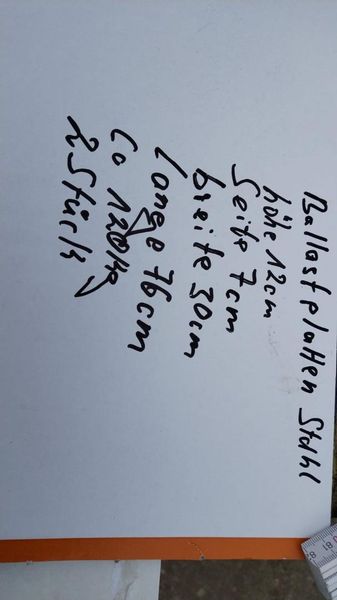 Ballastplatten Stahl
höhe 12cm
Seite 7cm
breite 30cm
länge 76cm
Ca 120Kg
2 Stück